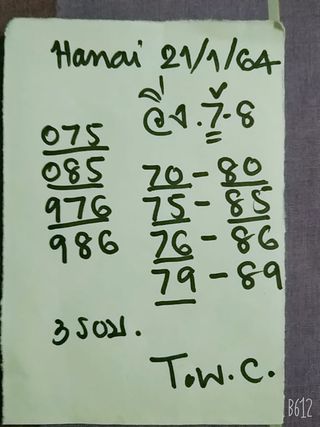 Hanai 21/1/64
วิ่ง.7-8
075
085
976
986
70-80
75-85
76-86
79-89
3รอบ.
T.W.C.
B612